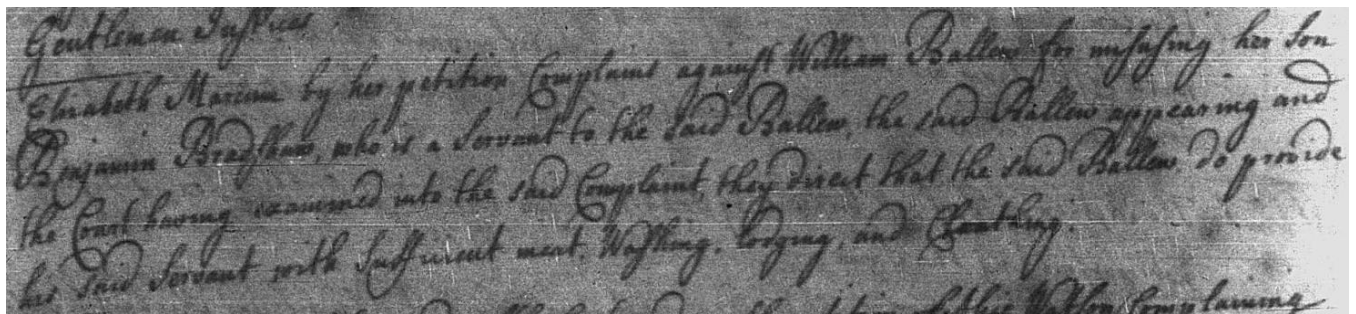 Gentlemen Justices
Elizabeth Marium by her petition Complains against William Ballew for misusing her Son
Benjamin Bradshaw, who is a Servant to the said Ballew, the said Ballew appearing and
the Court having examined into the said Complaint, they direct that the said Ballew do provide
his said Servant with Sufficient meat, Washing, lodging, and Cloathing.
Watson Complaining